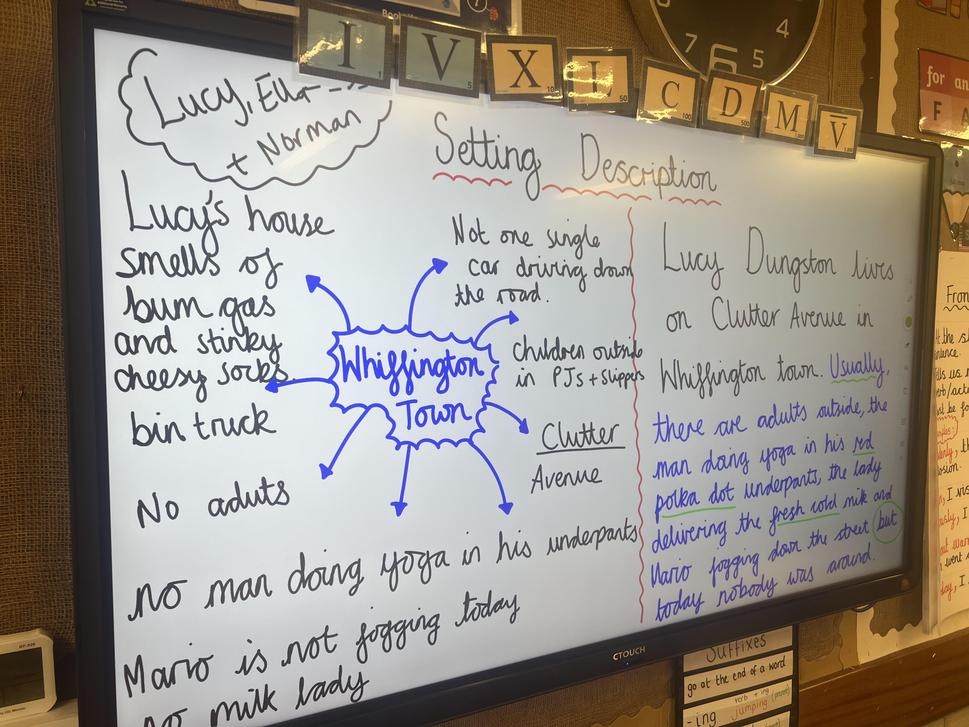 I V X L C D M V
7 6 5 4
Lucy, Ella
+ Norman
Setting Description
Lucy's house
smells of
bum gas
and stinky
cheesy socks
bin truck
No aduts
no man doing yoga in his underpants
Mario is not jogging today
no milk lady
Not one single
car driving down
the road.
children outside
in PJs + slippers
Clutter
Avenue
Whiffington
Town
Lucy Dungston lives
on Clutter Avenue in
Whiffington town. Usually,
there are adults outside, the
man doing yoga in his red
polka dot underpants, the lady
delivering the fresh cold milk and
Mario jogging down the street but
today nobody was around.
CTOUCH
Suffixes
go at the end of a word
verb + ing
-ing jumping
for an
F A
From